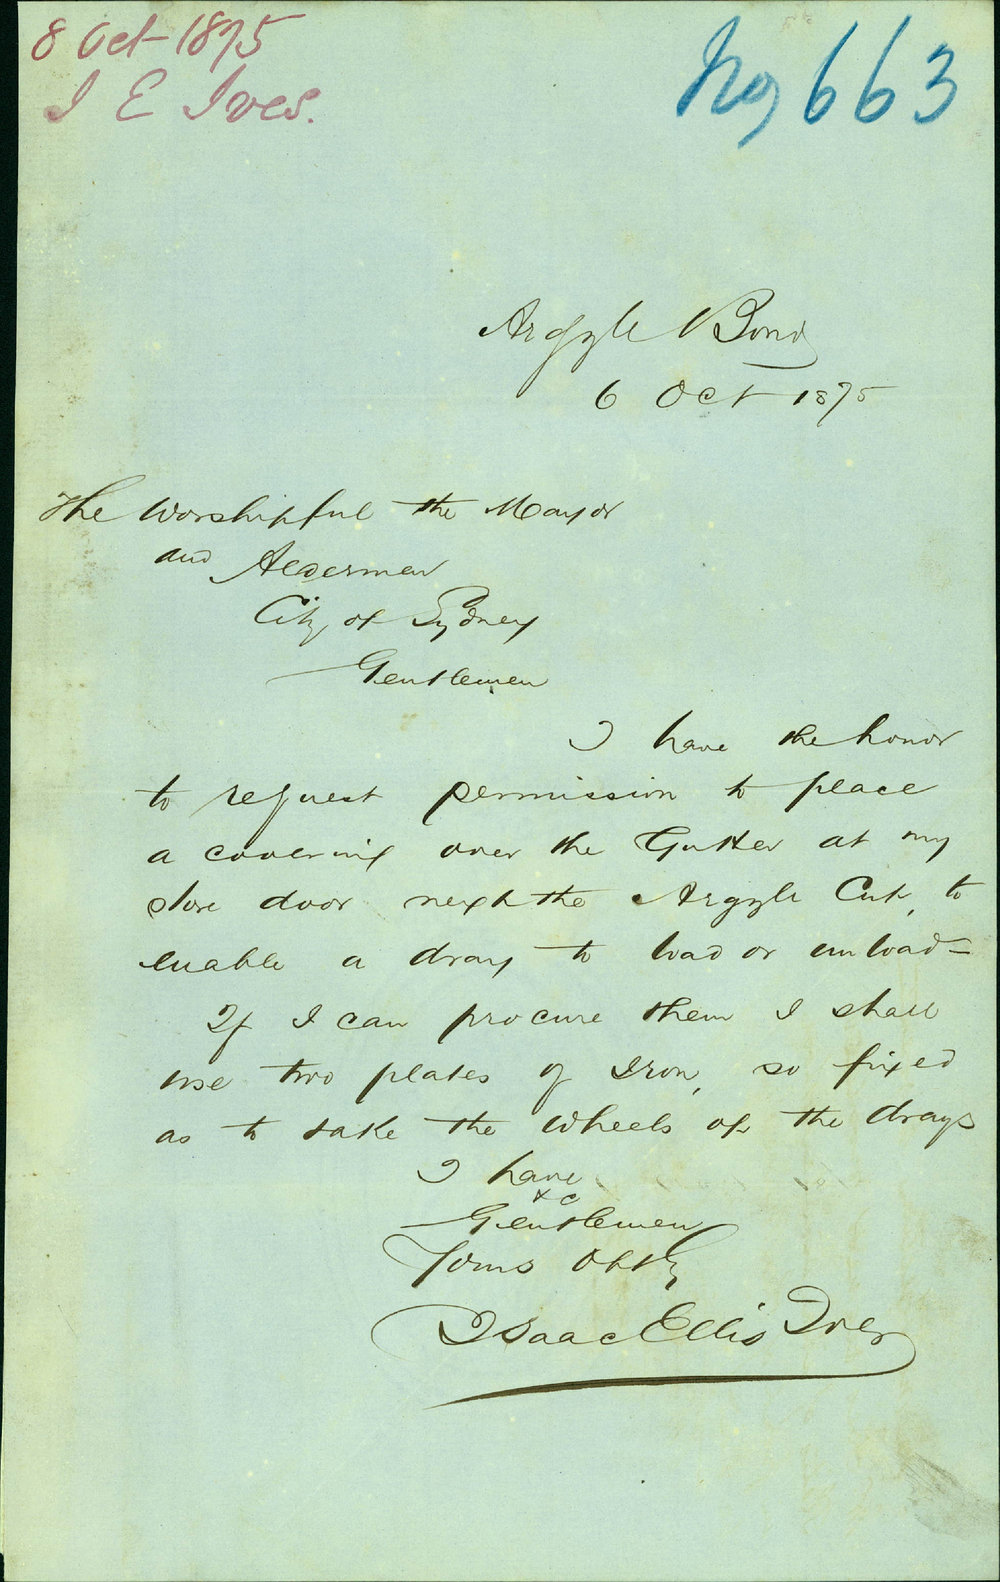 8 Oct 1875
I E Ives.
No 663
Argyle Bond
6 Oct 1875
The Worshipful the Mayor
and Aldermen
City of Sydney
Gentlemen
I have the honor
to request permission to place
a covering over the Gutter at my
store door next the Argyle Cut, to
enable a dray to load or unload =
If I can procure them I shall
use two plates of Iron, so fixed
as to take the wheels of the drays
I have
&c
Gentlemen
Yours obtly
Isaac Ellis Ives